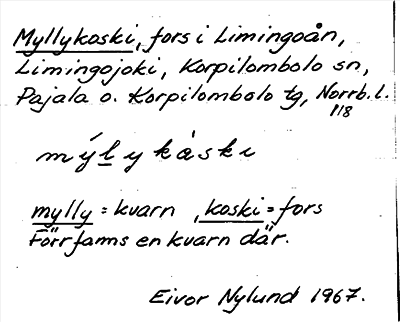 Myllykoski, fors i Limingoån,
Limingojoki, Korpilombolo sn,
Pajala o. Korpilombolo tg, Norrb. l.
118
mýlykåski
mylly = kvarn, koski = fors
Förr fanns en kvarn där.
Eivor Nylund 1967.